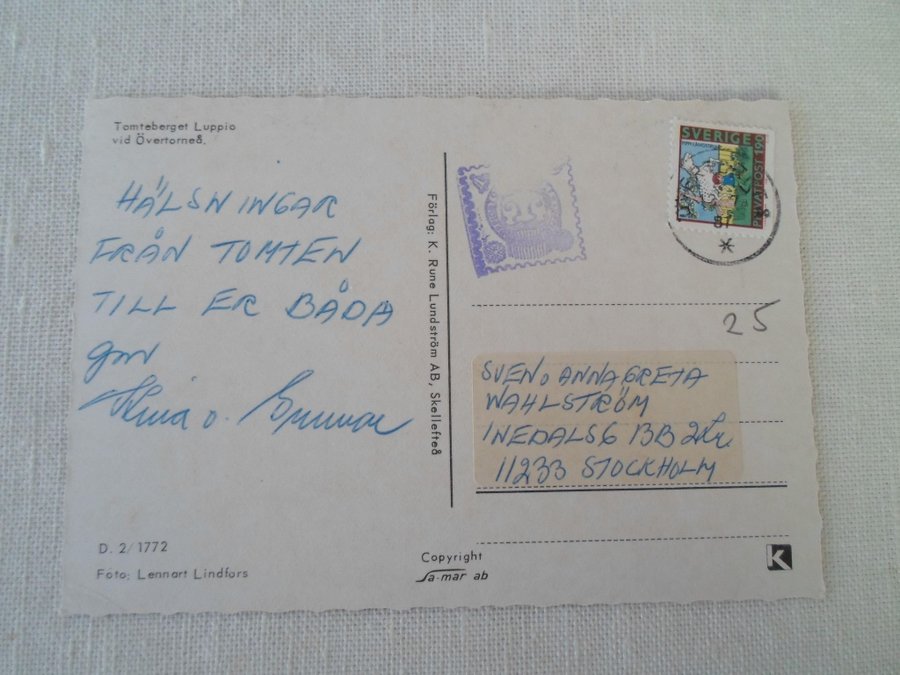 Tomteberget Luppio
vid Övertorneå.
HÄLSNINGAR
FRÅN TOMTEN
TILL ER BÅDA
gm
o. Gunnar
D. 2/1772
Foto: Lennart Lindfors
Förlag: K. Rune Lundström AB, Skellefteå
Copyright
Sa-mar ab
K
SVERIGE
PRIVATPOST 1.90
25
SVEN o ANNAGRETA
WAHLSTRÖM
INEDALSG 13B 2tr.
11233 STOCKHOLM